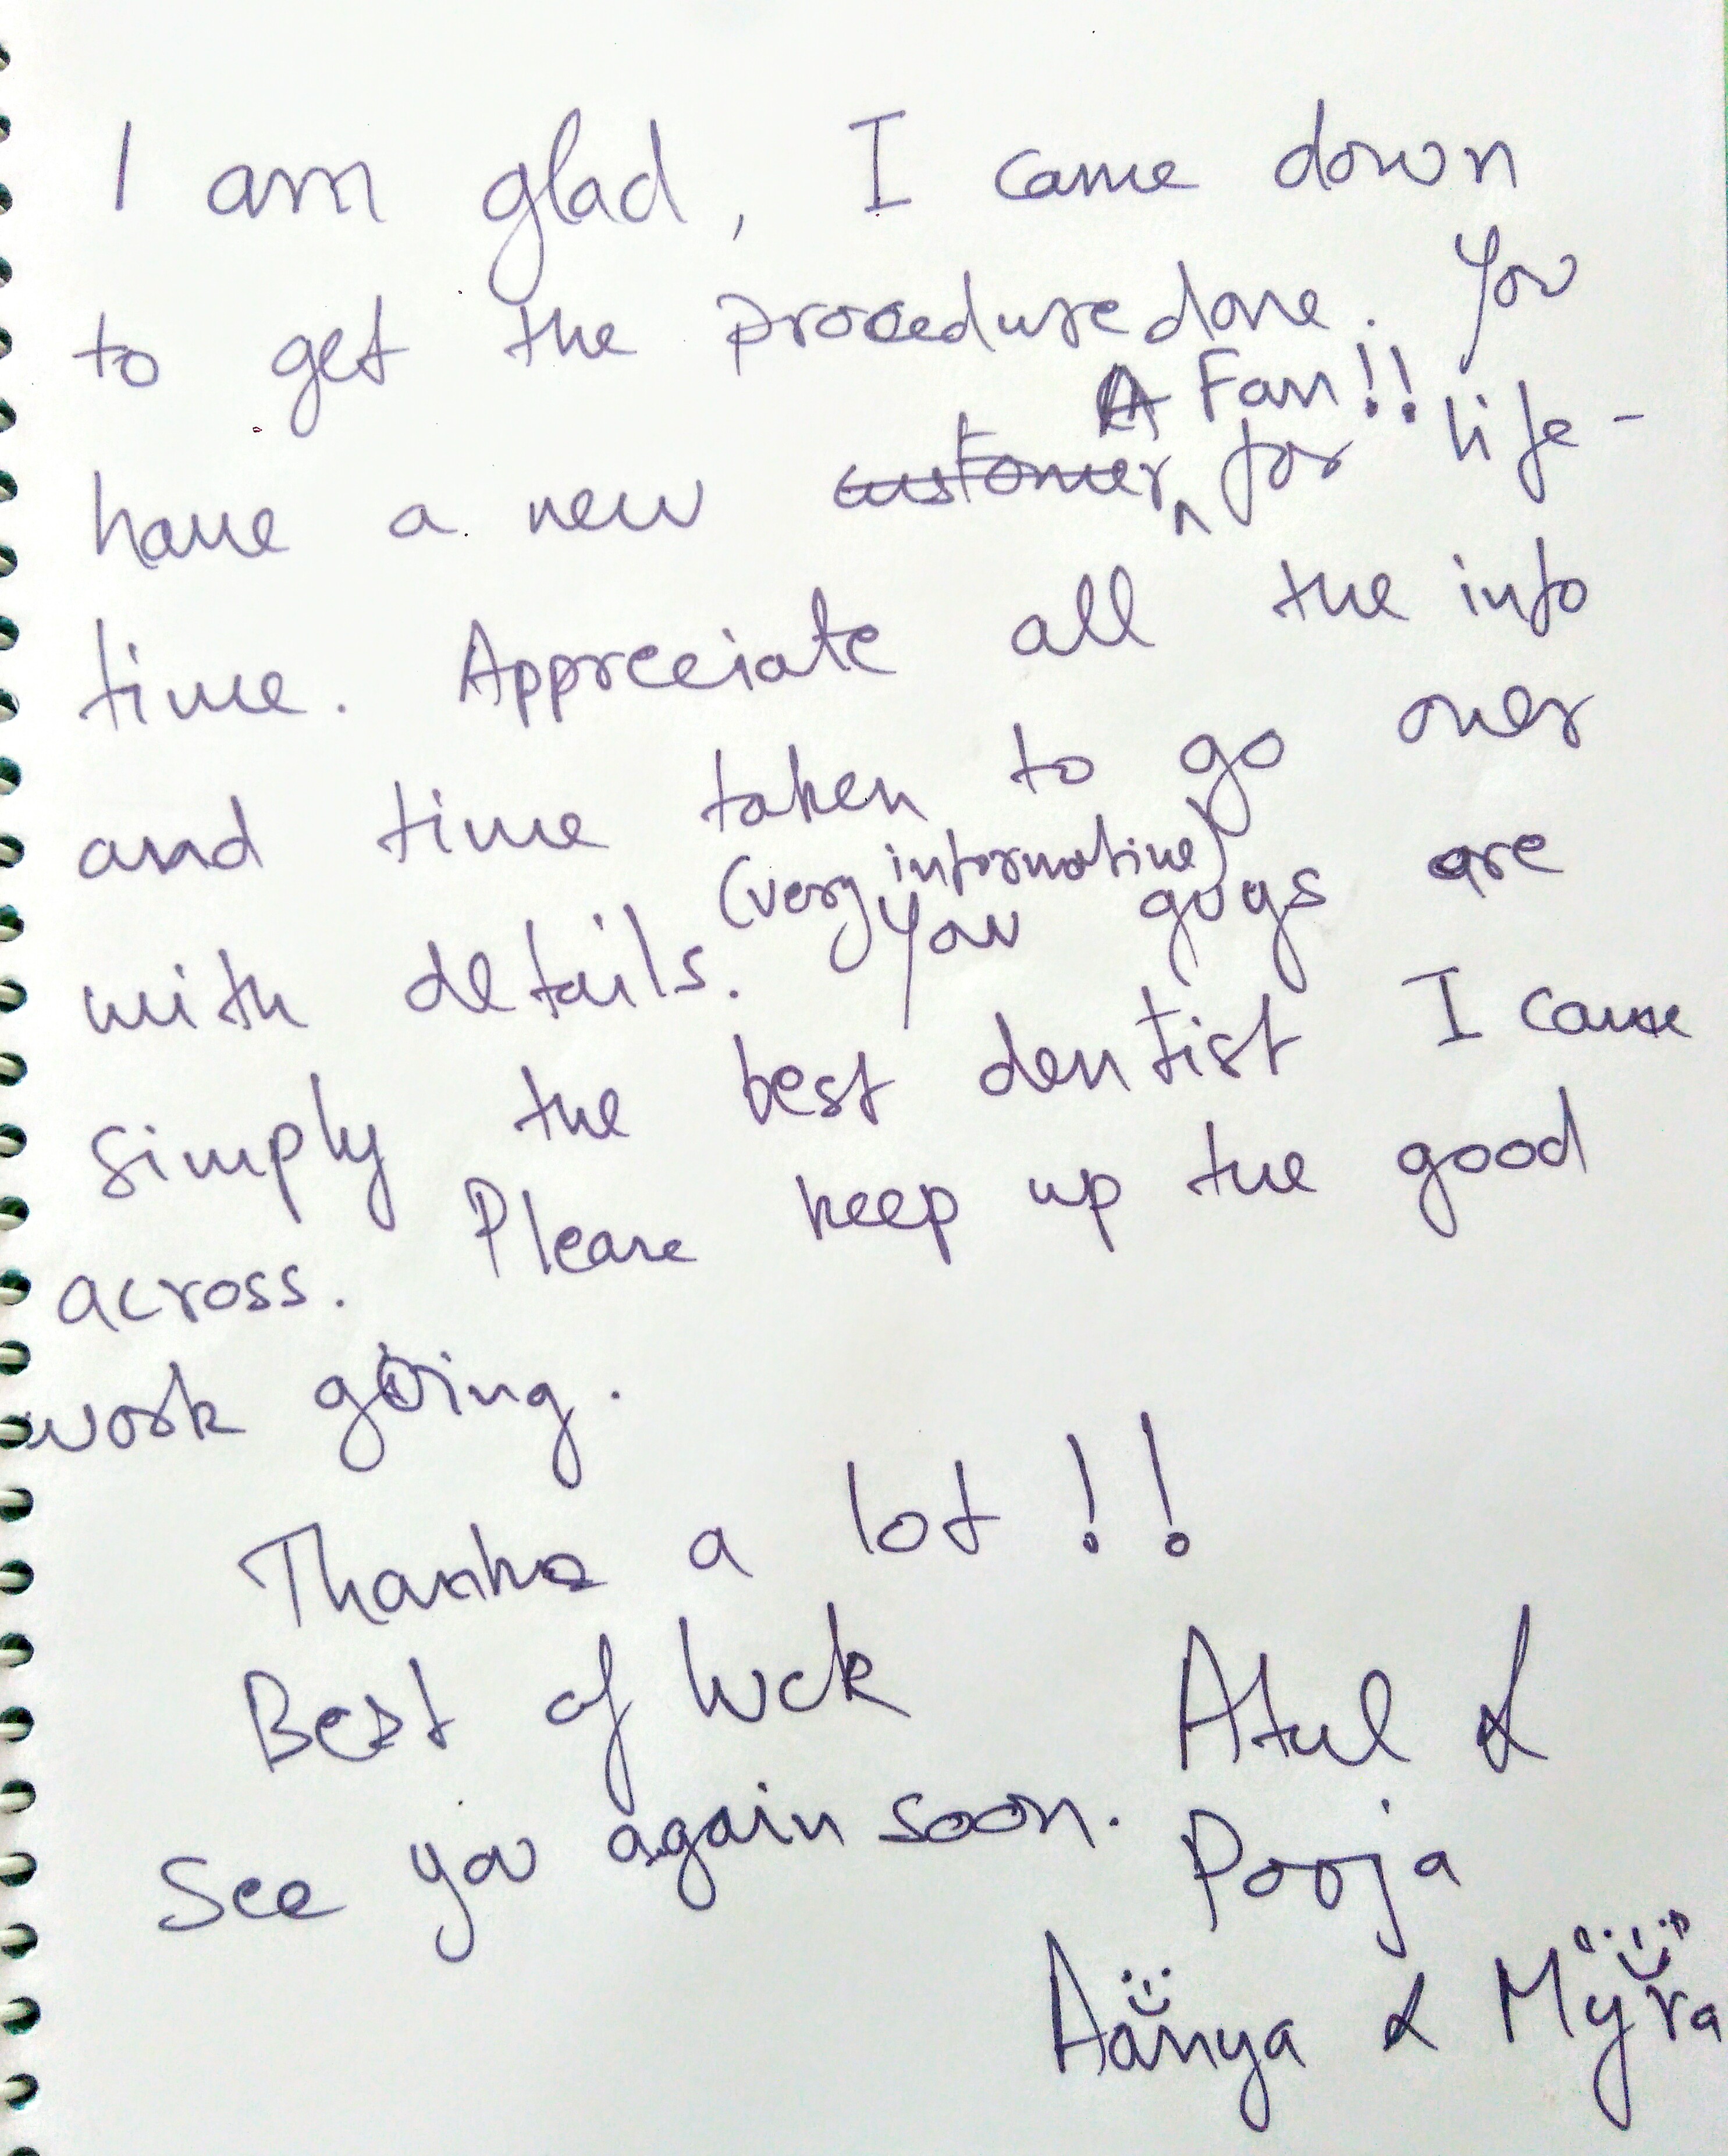 I am glad, I came down
to get the procedure done. You
A Fan!!
have a new customer ^ for life-
time. Appreciate all the info
and time taken to go over
(very informative)
with details. You guys are
simply the best dentist I came
across. Please keep up the good
work going.
Thanks a lot!!
Best of luck
See you again soon.
Atul &
Pooja
Aanya & Myra